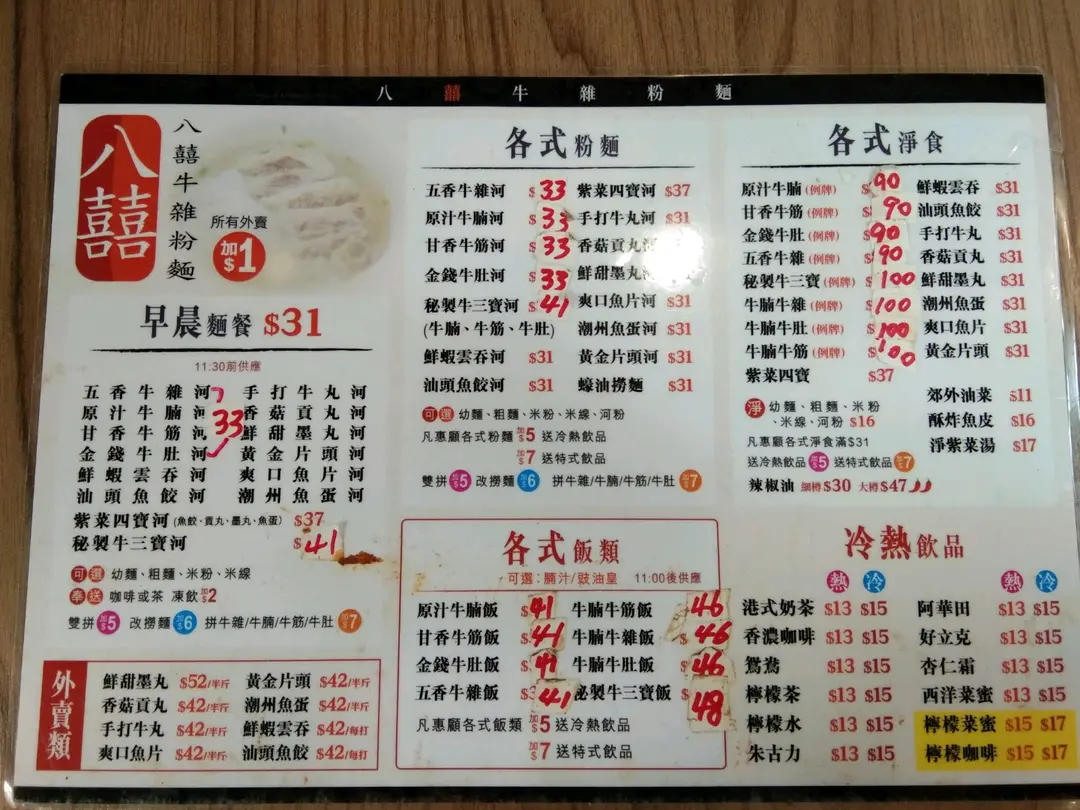 八囍牛雜粉麵
八囍
八囍牛雜粉麵
所有外賣
加$1
早晨麵餐 $31
11:30前供應
五香牛雜河 手打牛丸河
原汁牛腩河 33 香菇貢丸河
甘香牛筋河 鮮甜墨丸河
金錢牛肚河 黃金片頭河
鮮蝦雲吞河 爽口魚片河
汕頭魚餃河 潮州魚蛋河
紫菜四寶河(魚餃、貢丸、墨丸、魚蛋) $37
秘製牛三寶河 $41
可選 幼麵、粗麵、米粉、米線
奉送 咖啡或茶 凍飲加$2
雙拼加$5 改撈麵加$6 拼牛雜/牛腩/牛筋/牛肚加$7
外賣類
鮮甜墨丸 $52/半斤 黃金片頭 $42/半斤
香菇貢丸 $42/半斤 潮州魚蛋 $42/半斤
手打牛丸 $42/半斤 鮮蝦雲吞 $42/每打
爽口魚片 $42/半斤 汕頭魚餃 $42/每打
各式粉麵
五香牛雜河 $33 紫菜四寶河 $37
原汁牛腩河 $33 手打牛丸河 $31
甘香牛筋河 $33 香菇貢丸河
金錢牛肚河 $33 鮮甜墨丸
秘製牛三寶河 $41 爽口魚片河 $31
(牛腩、牛筋、牛肚) 潮州魚蛋河 $31
鮮蝦雲吞河 $31 黃金片頭河 $31
汕頭魚餃河 $31 蠔油撈麵 $31
可選 幼麵、粗麵、米粉、米線、河粉
凡惠顧各式粉麵 加$5 送冷熱飲品
加$7 送特式飲品
雙拼加$5 改撈麵加$6 拼牛雜/牛腩/牛筋/牛肚加$7
各式飯類
可選：腩汁/豉油皇 11:00後供應
原汁牛腩飯 $41 牛腩牛筋飯 $46
甘香牛筋飯 $41 牛腩牛雜飯 $46
金錢牛肚飯 $41 牛腩牛肚飯 $46
五香牛雜飯 $3 41 秘製牛三寶飯 $48
凡惠顧各式飯類 加$5 送冷熱飲品
加$7 送特式飲品
各式淨食
原汁牛腩(例牌) $90 鮮蝦雲吞 $31
甘香牛筋(例牌) $90 汕頭魚餃 $31
金錢牛肚(例牌) $90 手打牛丸 $31
五香牛雜(例牌) $90 香菇貢丸 $31
秘製牛三寶(例牌) $100 鮮甜墨丸 $31
牛腩牛雜(例牌) $100 潮州魚蛋 $31
牛腩牛肚(例牌) $100 爽口魚片 $31
牛腩牛筋(例牌) $100 黃金片頭 $31
紫菜四寶 $37
淨 幼麵、粗麵、米粉
、米線、河粉 $16
凡惠顧各式淨食滿$31
送冷熱飲品加$5 送特式飲品加$7
郊外油菜 $11
酥炸魚皮 $16
淨紫菜湯 $17
辣椒油 細樽$30 大樽$47
冷熱飲品
熱 冷 熱 冷
港式奶茶 $13 $15 阿華田 $13 $15
香濃咖啡 $13 $15 好立克 $13 $15
鴛鴦 $13 $15 杏仁霜 $13 $15
檸檬茶 $13 $15 西洋菜蜜 $13 $15
檸檬水 $13 $15 檸檬菜蜜 $15 $17
朱古力 $13 $15 檸檬咖啡 $15 $17